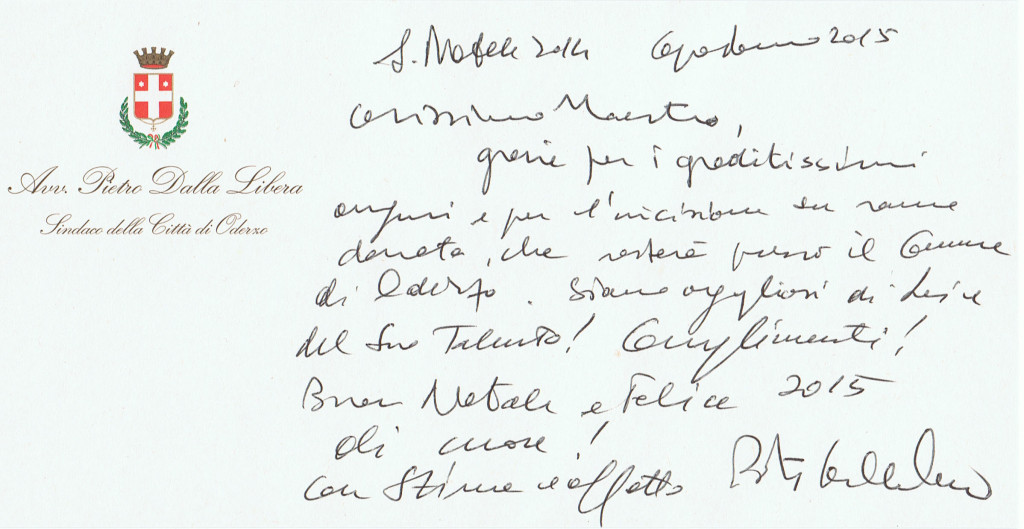 S. Natale 2014 Capodanno 2015
Avv. Pietro Dalla Libera
Sindaco della Città di Oderzo
carissimo Maestro,
grazie per i graditissimi
auguri e per l'incisione su rame
donata, che resterà presso il Comune
di Oderzo. Siamo orgogliosi di Lei e
del Suo Talento! Complimenti!
Buon Natale e Felice 2015
di cuore!
con stima e affetto